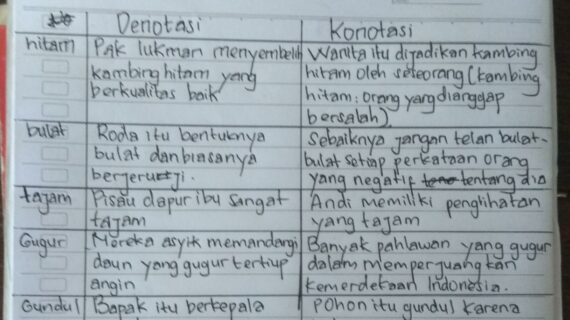 Denotasi Konotasi
hitam Pak lukman menyembelih Wanita itu dijadikan kambing
kambing hitam yang hitam oleh seseorang (kambing
berkualitas baik hitam: orang yang dianggap
bersalah)
bulat Roda itu bentuknya Sebaiknya jangan telan bulat-
bulat dan biasanya bulat setiap perkataan orang
berjeruji. yang negatif tentang dia
tajam Pisau dapur ibu sangat Andi memiliki penglihatan
tajam yang tajam
Gugur Mereka asyik memandangi Banyak pahlawan yang gugur
daun yang gugur tertiup dalam memperjuangkan
angin kemerdekaan Indonesia.
Gundul Bapak itu berkepala Pohon itu gundul karena